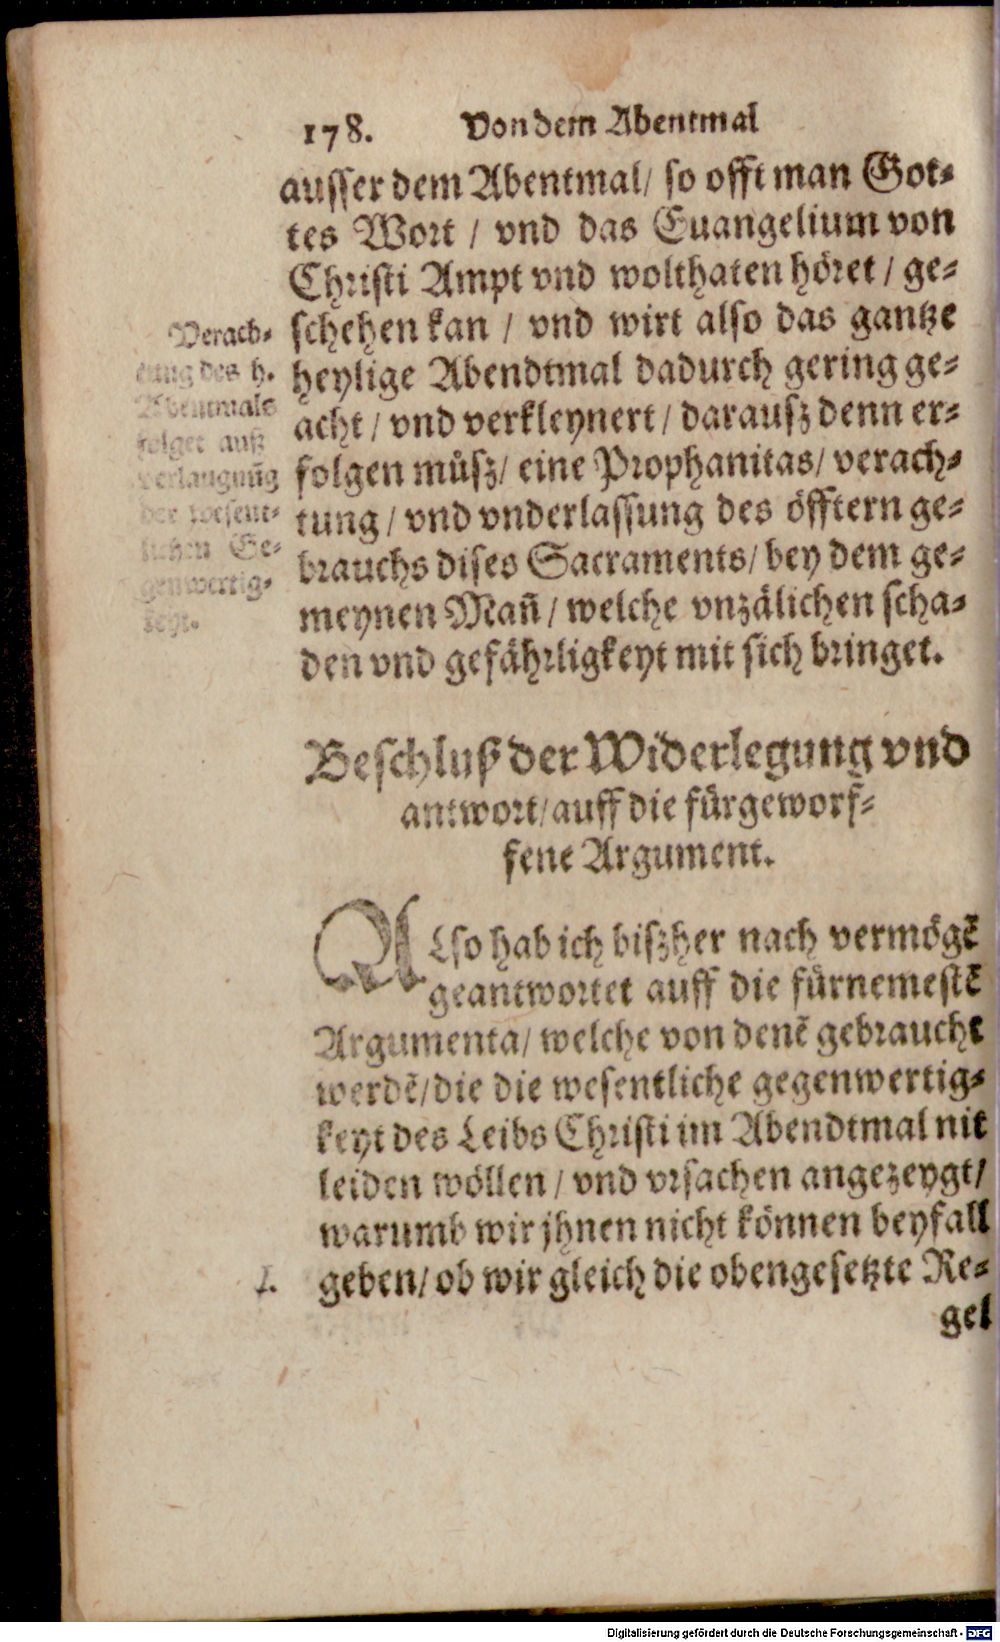 178. Von dem Abentmal
ausser dem Abentmal/ so offt man Got-
tes Wort / vnd das Euangelium von
Christi Ampt vnd wolthaten höret / ge-
schehen kan / vnd wirt also das gantze
heylige Abendtmal dadurch gering ge-
acht / vnd verkleynert / darausz denn er-
folgen müsz/ eine Prophanitas/ verach-
tung / vnd vnderlassung des öfftern ge-
brauchs dises Sacraments/ bey dem ge-
meynen Mañ / welche vnzälichen scha-
den vnd gefährligkeyt mit sich bringet.
Verach-
tung des h.
Abentmals
folget auß
verlaugnug̃
der wesent-
lichen Ge-
genwertig-
keyt.
Beschluß der Widerlegung vnd
antwort/ auff die fürgeworf-
fene Argument.
ALso hab ich biszher nach vermögẽ
geantwortet auff die fürnemestẽ
Argumenta/ welche von denẽ gebraucht
werdẽ/ die die wesentliche gegenwertig-
keyt des Leibs Christi im Abendtmal nit
leiden wöllen / vnd vrsachen angezeygt/
warumb wir jhnen nicht können beyfall
1. geben/ ob wir gleich die obengesetzte Re-
gel
Digitalisierung gefördert durch die Deutsche Forschungsgemeinschaft - DFG